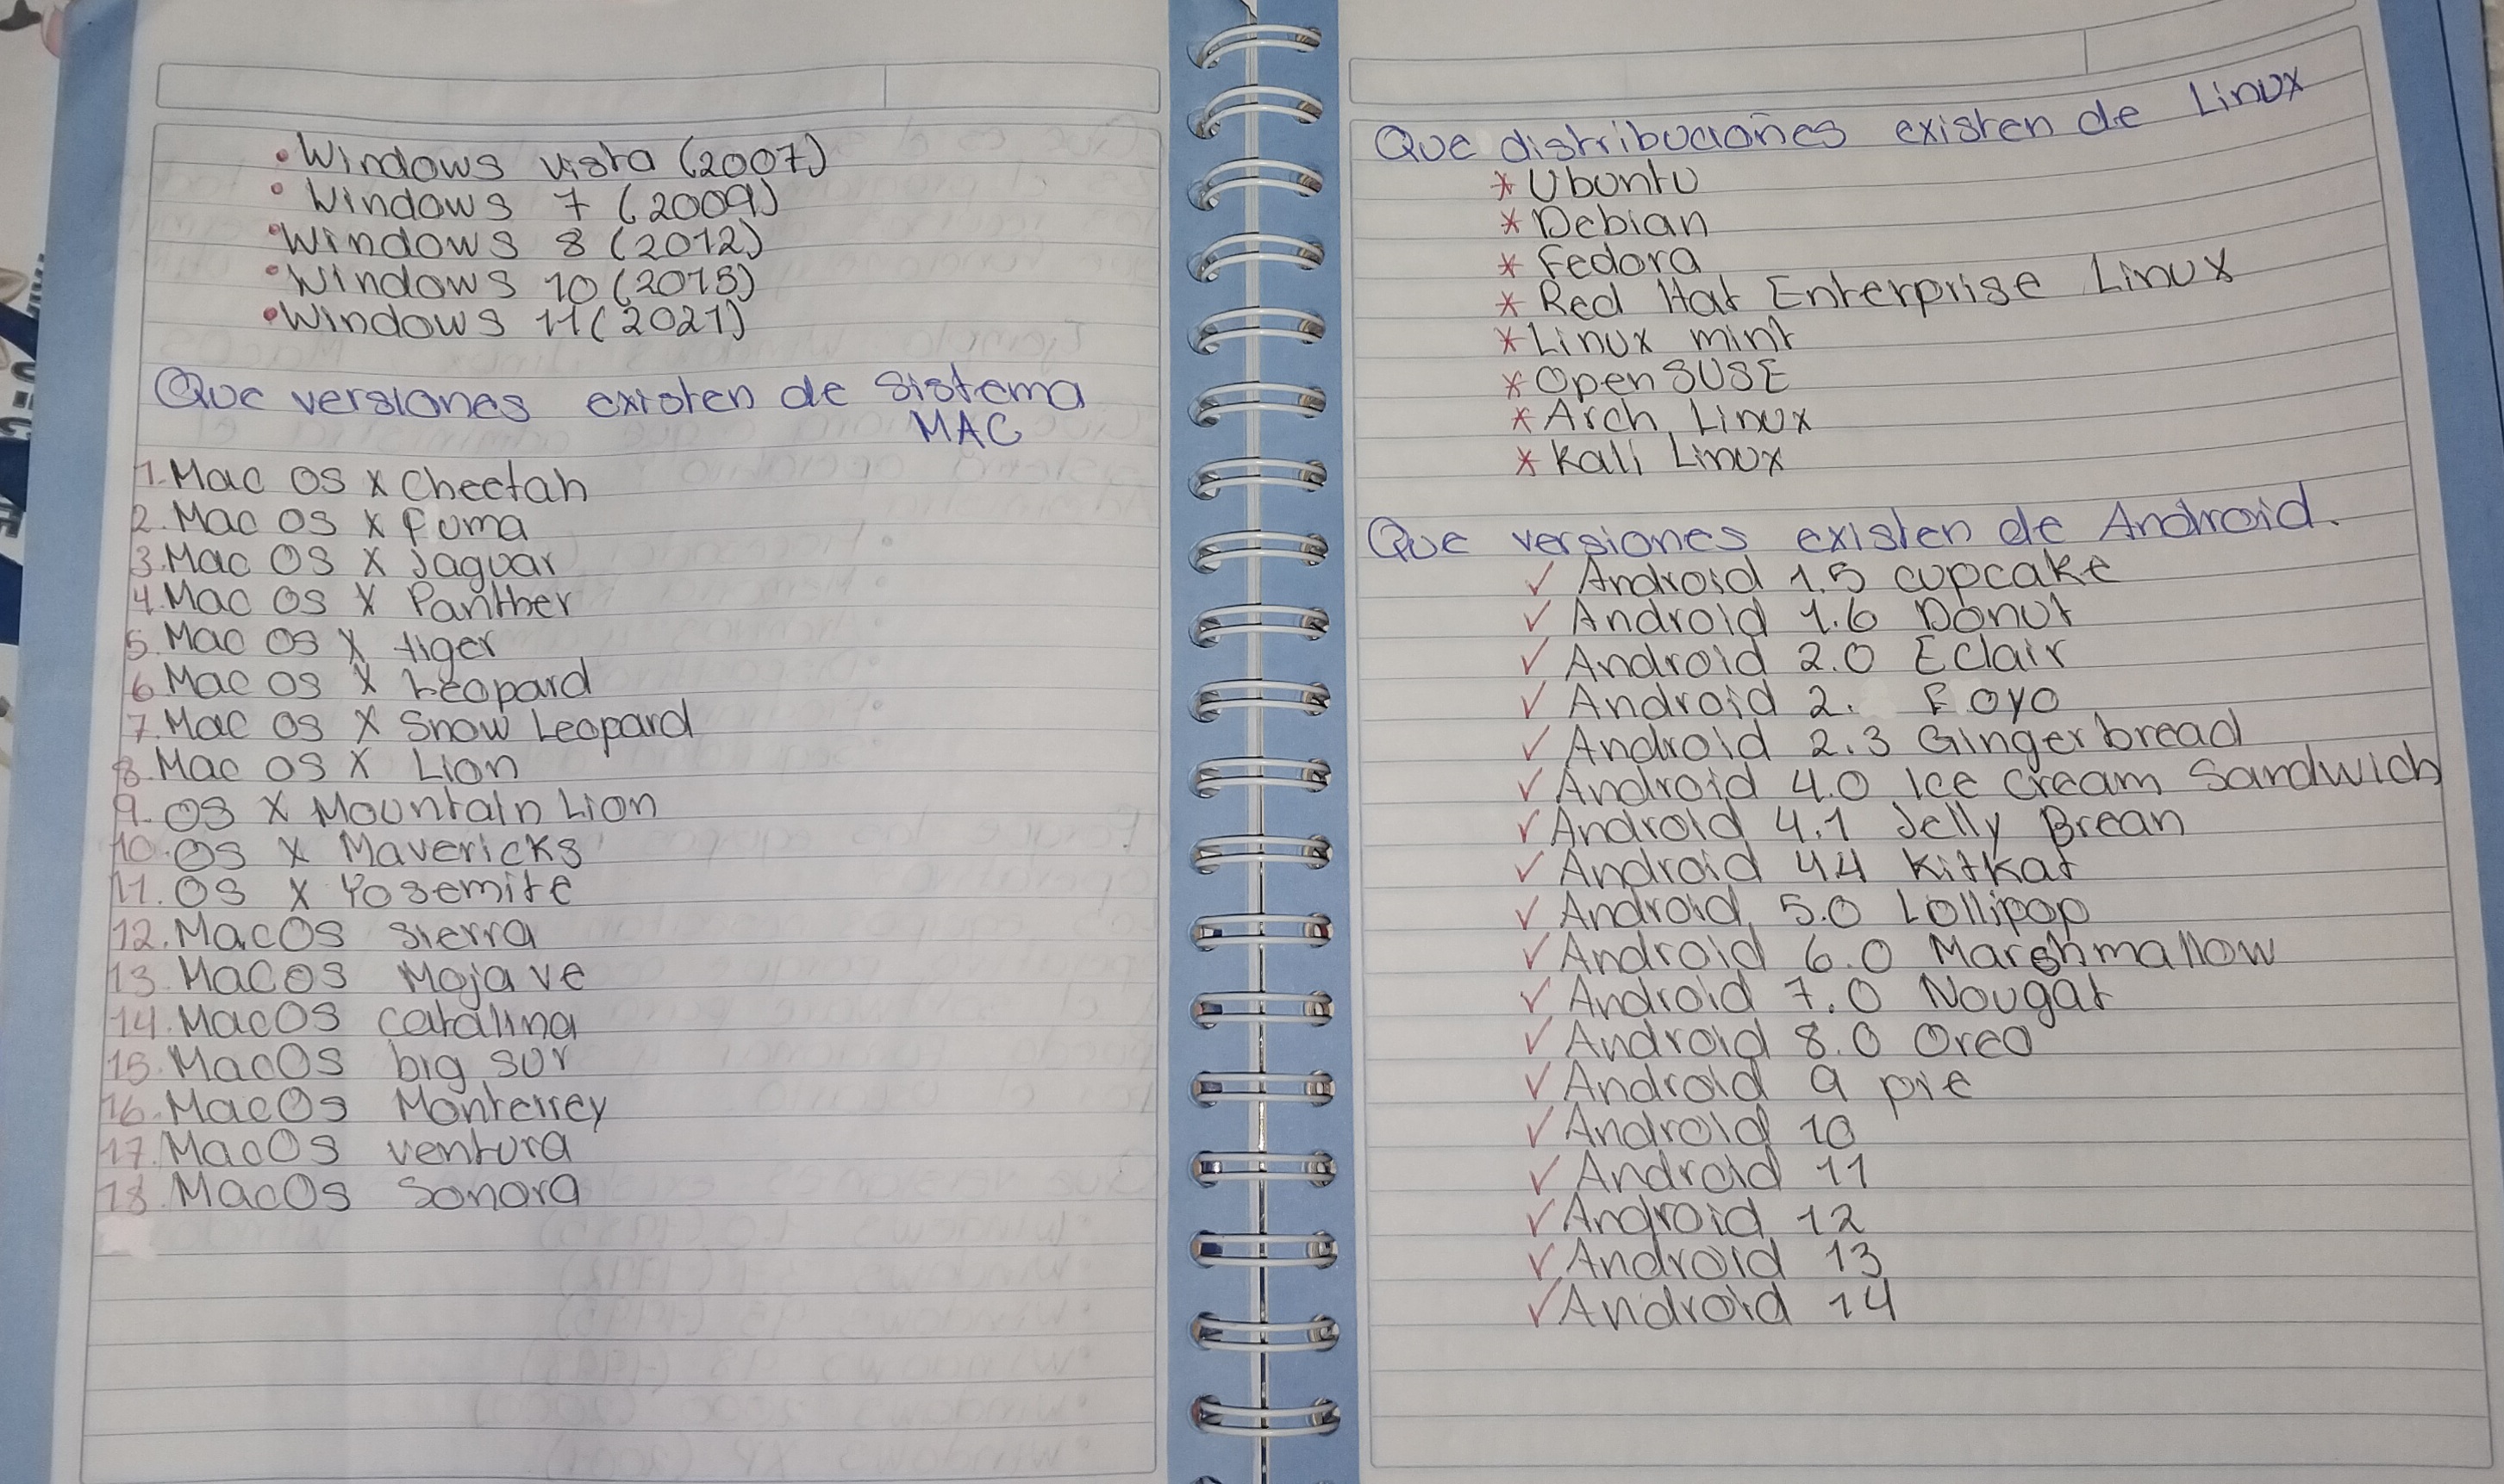 • Windows vista (2007)
• Windows 7 (2009)
• Windows 8 (2012)
• Windows 10 (2015)
• Windows 11 (2021)
Que versiones existen de sistema
MAC
1. Mac OS X Cheetah
2. Mac OS X Puma
3. Mac OS X Jaguar
4. Mac OS X Panther
5. Mac OS X tiger
6. Mac OS X Leopard
7. Mac OS X Snow Leopard
8. Mac OS X Lion
9. OS X Mountain Lion
10. OS X Mavericks
11. OS X Yosemite
12. MacOS sierra
13. MacOS Mojave
14. MacOS catalina
15. MacOS big sur
16. MacOS Monterrey
17. MacOS ventura
18. MacOS Sonora
Que distribuciones existen de Linux
* Ubuntu
* Debian
* Fedora
* Red Hat Enterprise Linux
* Linux mint
* OpenSUSE
* Arch Linux
* Kali Linux
Que versiones existen de Android.
✓ Android 1.5 cupcake
✓ Android 1.6 Donut
✓ Android 2.0 Eclair
✓ Android 2. F oyo
✓ Android 2.3 Gingerbread
✓ Android 4.0 Ice Cream Sandwich
✓ Android 4.1 Jelly Brean
✓ Android 4.4 KitKat
✓ Android 5.0 Lollipop
✓ Android 6.0 Marshmallow
✓ Android 7.0 Nougat
✓ Android 8.0 Oreo
✓ Android 9 pie
✓ Android 10
✓ Android 11
✓ Android 12
✓ Android 13
✓ Android 14